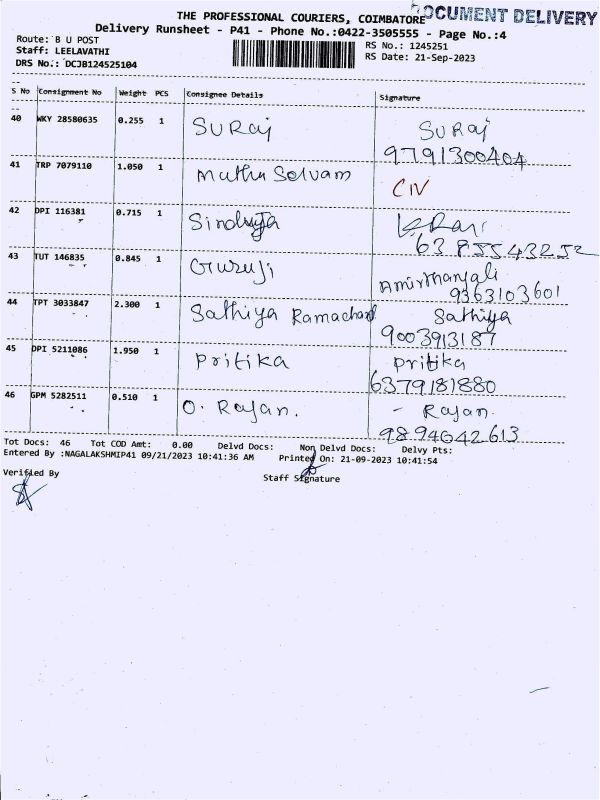 THE PROFESSIONAL COURIERS, COIMBATORE
DOCUMENT DELIVERY
Delivery Runsheet - P41 - Phone No.:0422-3505555 - Page No.:4
Route: B U POST
RS No.: 1245251
Staff: LEELAVATHI
RS Date: 21-Sep-2023
DRS No.: DCJB124525104
S No Consignment No Weight PCS Consignee Details Signature
40 WKY 28580635 0.255 1 Suraj Suraj
9791300404
41 TRP 7079110 1.050 1 Muthu Selvam CIV
42 DPI 116381 0.715 1 Sindhuja
6385543252
43 TUT 146835 0.845 1 Guruji Amirthanjali
9363103601
44 TPT 3033847 2.300 1 Sathiya Ramachand Sathiya
9003913187
45 DPI 5211086 1.950 1 Pritika Pritika
6379181880
46 GPM 5282511 0.510 1 O. Rajan. - Rajan.
9894642613
Tot Docs: 46 Tot COD Amt: 0.00 Delvd Docs: Non Delvd Docs: Delvy Pts:
Entered By :NAGALAKSHMIP41 09/21/2023 10:41:36 AM Printed On: 21-09-2023 10:41:54
Verified By
Staff Signature